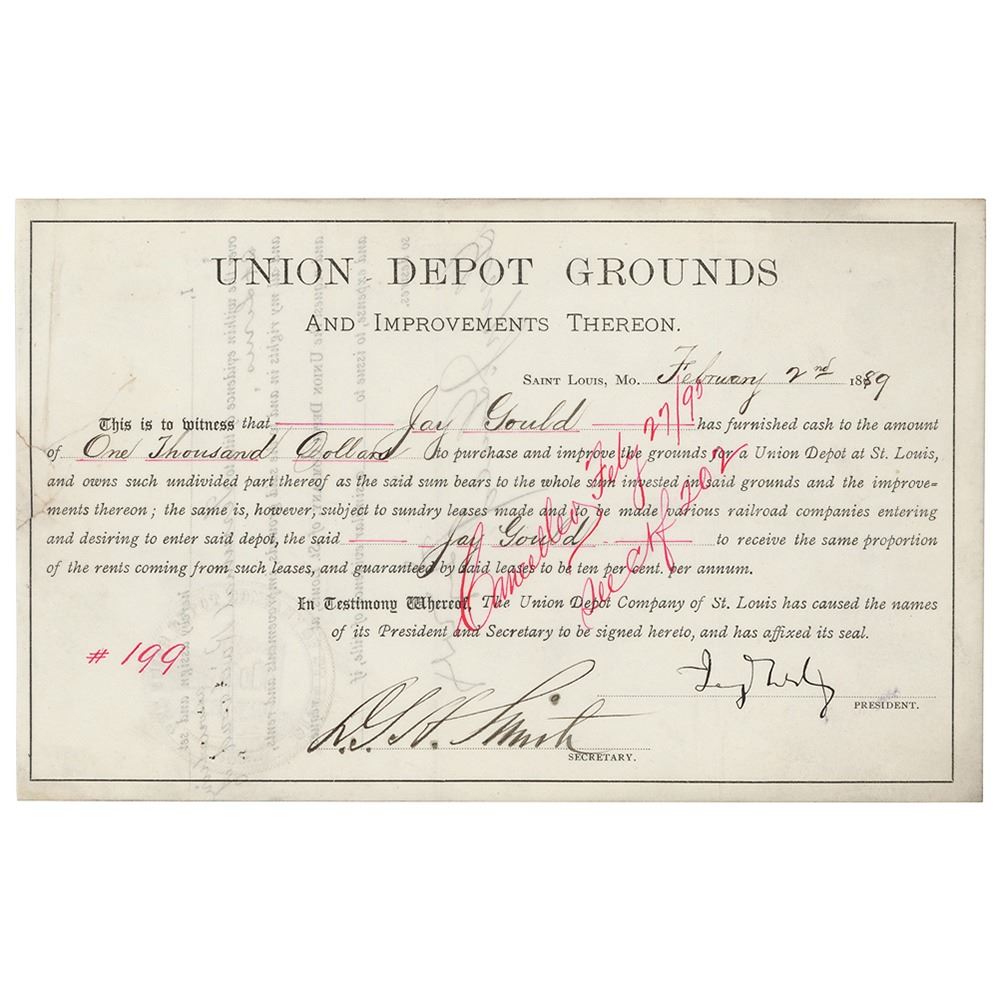 UNION DEPOT GROUNDS
AND IMPROVEMENTS THEREON.
SAINT LOUIS, MO. February 2nd 1889
This is to witness that Jay Gould has furnished cash to the amount
of One Thousand Dollars to purchase and improve the grounds for a Union Depot at St. Louis,
and owns such undivided part thereof as the said sum bears to the whole sum invested in said grounds and the improve=
ments thereon; the same is, however, subject to sundry leases made and to be made various railroad companies entering
and desiring to enter said depot, the said Jay Gould to receive the same proportion
of the rents coming from such leases, and guaranteed by said leases to be ten per cent. per annum.
Cancelled Feby 27/90
See Ctf 202
In Testimony Whereof, The Union Depot Company of St. Louis has caused the names
of its President and Secretary to be signed hereto, and has affixed its seal.
# 199
PRESIDENT.
Smith
SECRETARY.